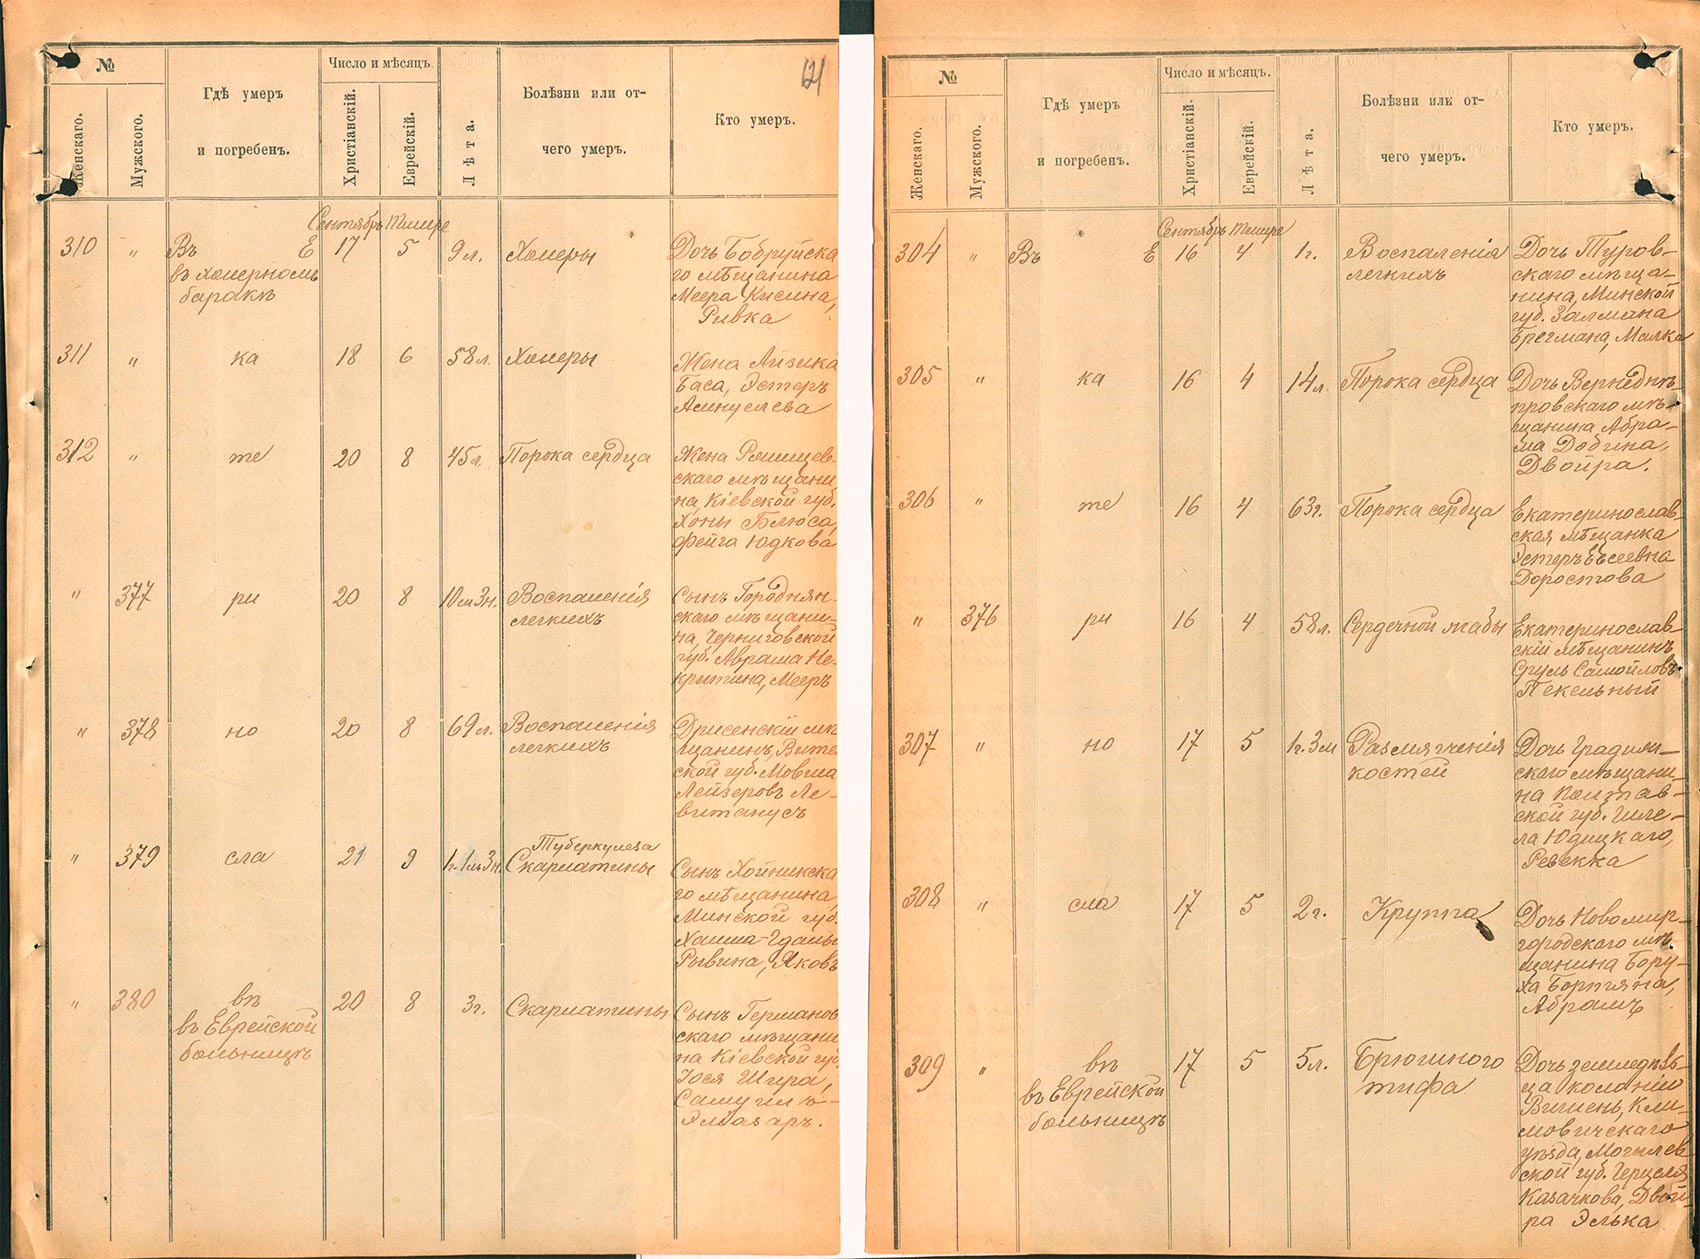 121
№
Женскаго.
Мужского.
Гдѣ умеръ
и погребенъ.
Число и мѣсяцъ.
Христіанскій.
Еврейскій.
Лѣта.
Болѣзни или от-
чего умеръ.
Кто умеръ.
Сентябрь Тишре
310 „ Въ Е 17 5 9 л. Холеры
въ холерномъ
баракѣ
Дочь Бобруйска
го мѣщанина
Меера Кисина,
Ривка
311 „ ка 18 6 58 л. Холеры
Жена Айзика
Баса, Эстеръ
312 „ те 20 8 45 л. Порока сердца
Жена
скаго мѣщани
на Кіевской губ.
Хоны Блюса,
Фейга Юдкова
„ 377 ри 20 8 10 м. 3 н. Воспаленія
легкихъ
Сынъ Городнян-
скаго мѣщани-
на, Черниговской
губ. Аврама Не-
критина, Мееръ
„ 378 но 20 8 69 л. Воспаленія
легкихъ
Дрисенскій мѣ
щанинъ, Вите
ской губ. Мовша
Лейзеровъ Ле-
витанусъ
„ 379 сла 21 9 1 г. 1 м. 3 н. Туберкулеза
Скарлатины
Сынъ Хойникска
го мѣщанина,
Минской губ.
Хаима-Гдаль
Рывина, Яковъ
„ 380 въ 20 8 3 г. Скарлатины
въ Еврейской
больницѣ
Сынъ Германов
скаго мѣщани
на Кіевской губ
Іося Шпера,
Самуилъ-
Элиазаръ.
№
Женскаго.
Мужского.
Гдѣ умеръ
и погребенъ.
Число и мѣсяцъ.
Христіанскій.
Еврейскій.
Лѣта.
Болѣзни или от-
чего умеръ.
Кто умеръ.
Сентябрь Тишре
304 „ Въ Е 16 4 1 г. Воспаленія
легкихъ
Дочь Туров-
скаго мѣща-
нина, Минской
губ. Залмана
Брегмана, Малка
305 „ ка 16 4 14 л. Порока сердца
Дочь Верхнеднѣ-
провскаго мѣ-
щанина Абра-
ма Добина,
Двойра.
306 „ те 16 4 63 г. Порока сердца
Екатеринослав-
ская мѣщанка
Эстеръ Евсеевна
Доростова
„ 376 ри 16 4 58 л. Сердечной жабы
Екатеринослав-
скій мѣщанинъ
Сруль Самойловъ
Пекельный
307 „ но 17 5 1 г. 3 м Размягченія
костей
Дочь Градиж-
скаго мѣщани-
на Полтав-
ской губ. Гиле-
ла Юдицкаго,
Ревекка
308 „ сла 17 5 2 г. Круппа
Дочь Новомир-
городскаго мѣ-
щанина Бору-
ха Бортяна,
Абрамъ
309 „ въ 17 5 5 л. Брюшного
въ Еврейской тифа
больницѣ
Дочь земледѣль-
ца колоніи
Вишень, Кли-
мовичскаго
уѣзда, Могилев
ской губ. Герцеля
Казачкова, Двой-
ра Элька